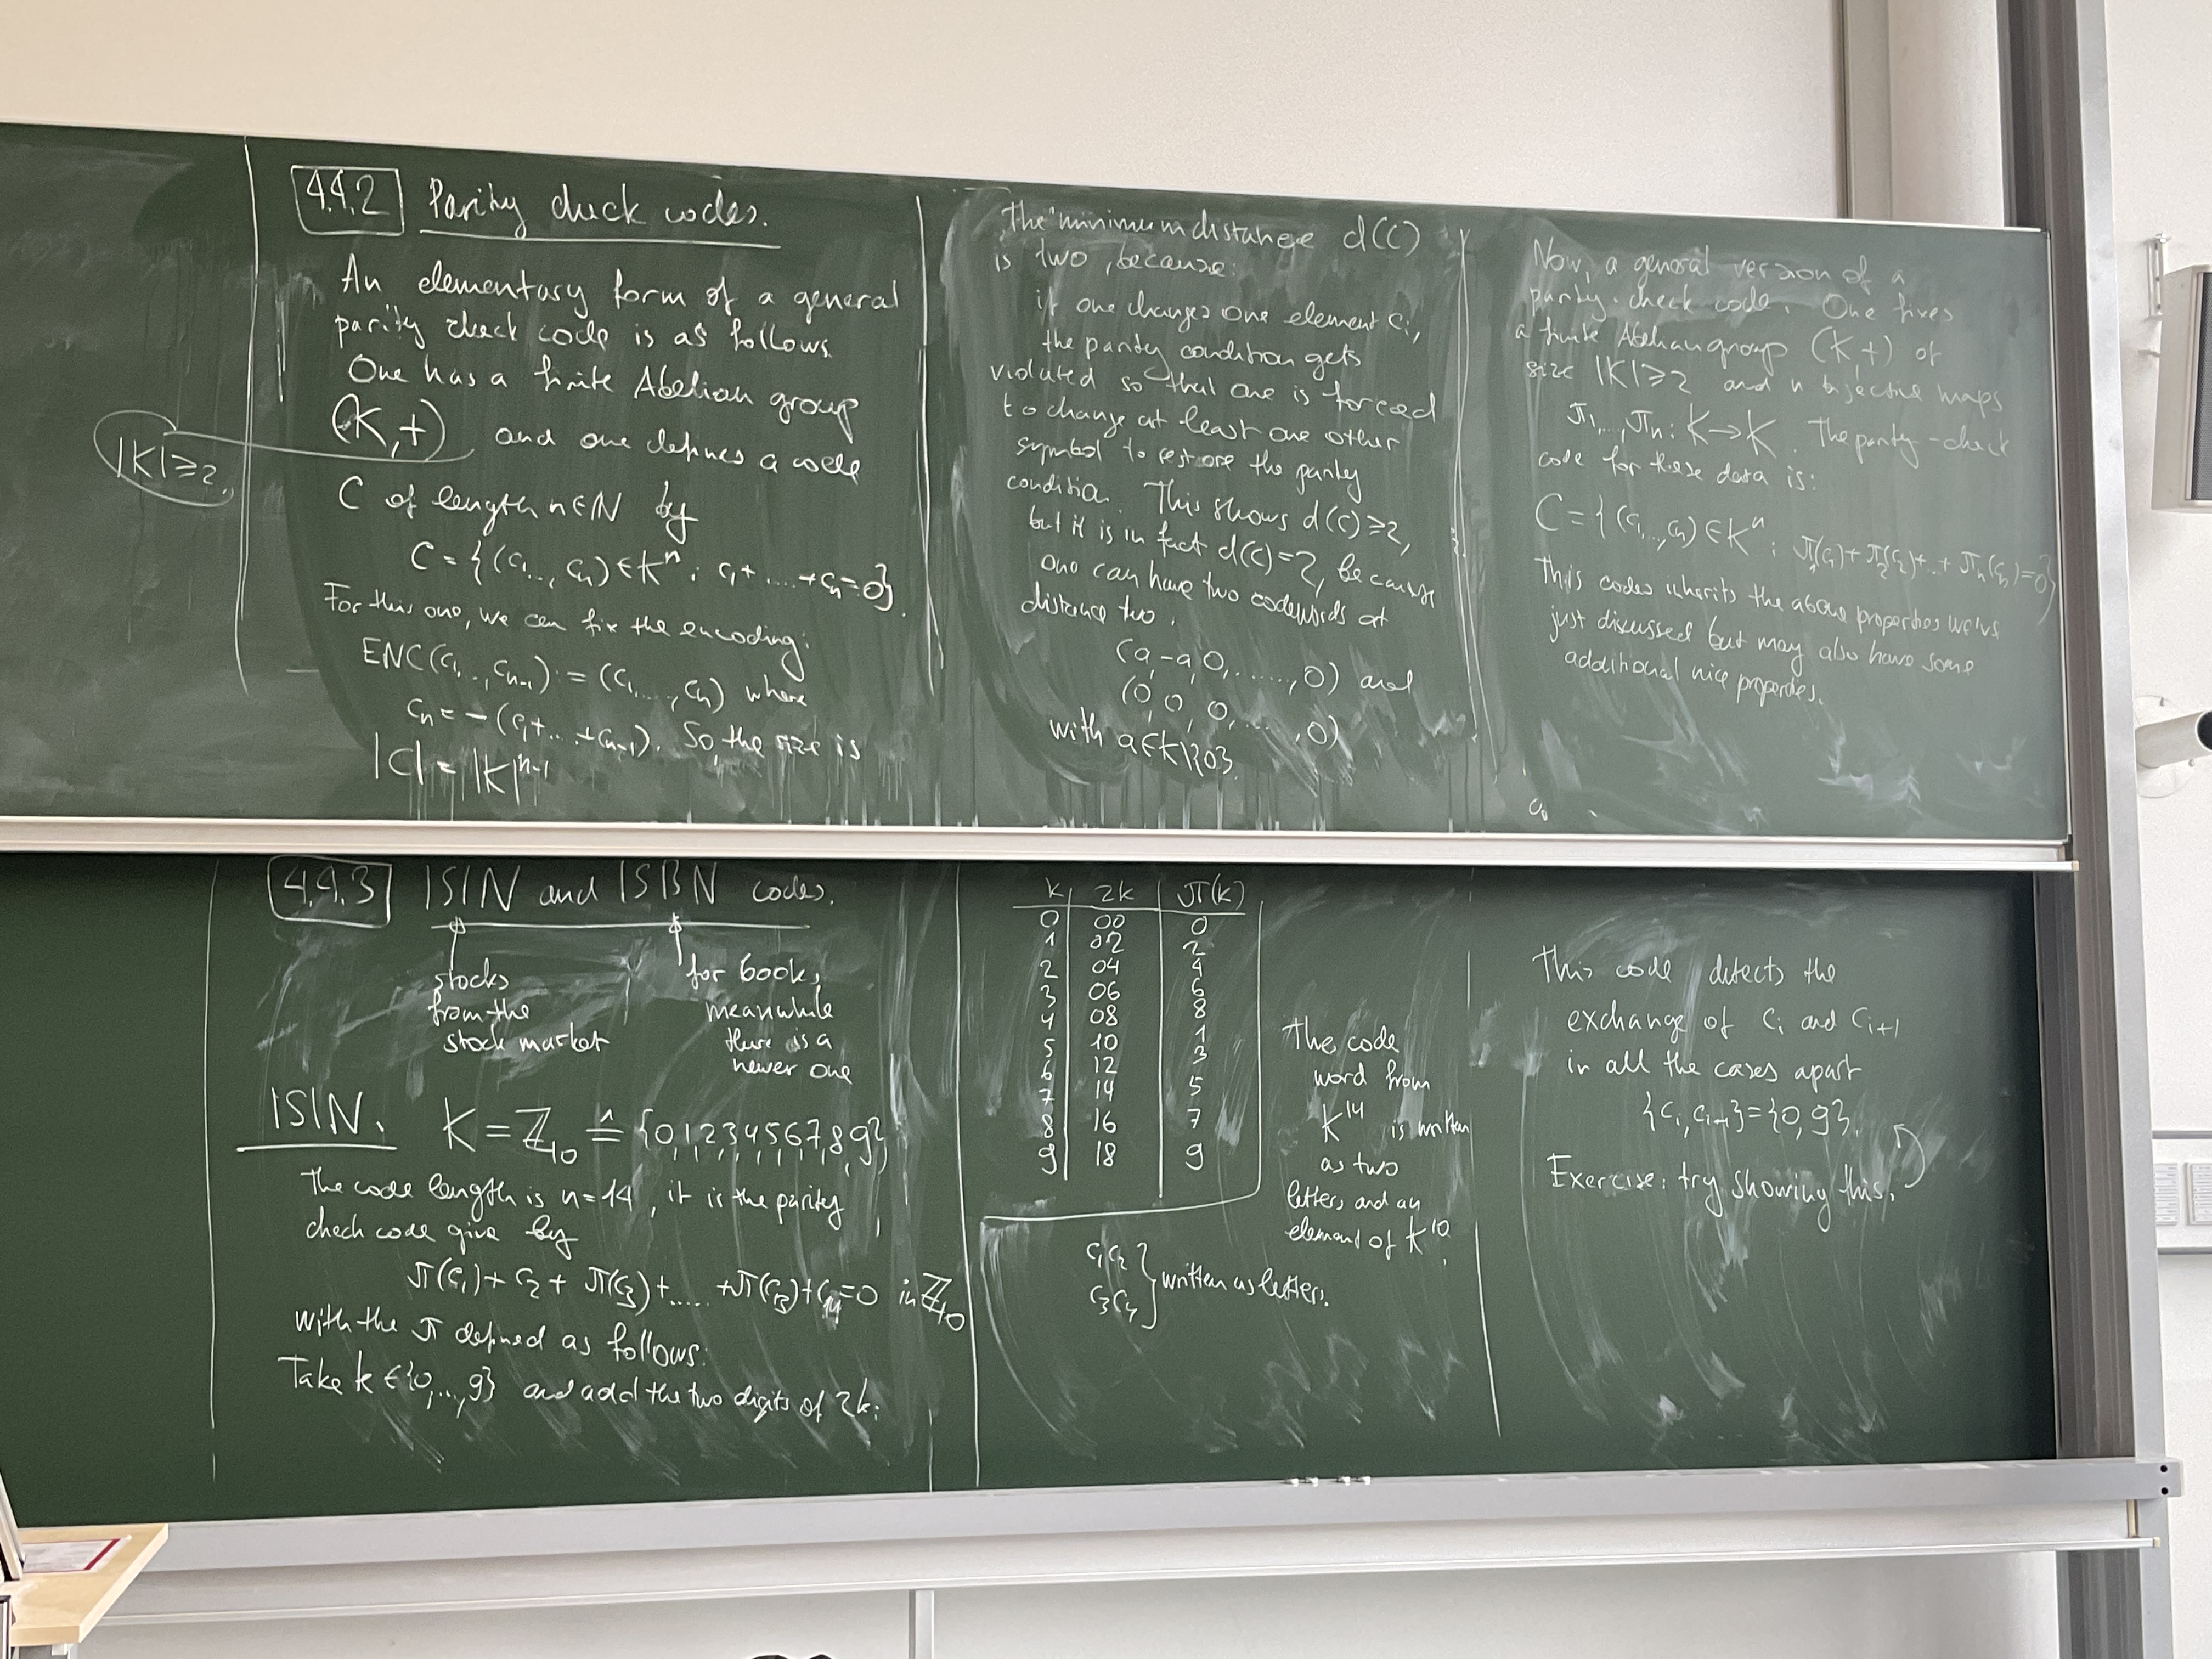 4.4.2 Parity check codes.
An elementary form of a general
parity check code is as follows.
One has a finite Abelian group
(K,+) and one defines a code
|K|≥2.
C of length n∈ℕ by
C={(c₁,...,cₙ)∈Kⁿ: c₁+....+cₙ=0}.
For this one, we can fix the encoding:
ENC(c₁,..,cₙ₋₁):=(c₁,...,cₙ) where
cₙ=-(c₁+...+cₙ₋₁). So, the size is
|C|=|K|ⁿ⁻¹
The minimum distance d(C)
is two, because:
if one changes one element cᵢ,
the parity condition gets
violated so that one is forced
to change at least one other
symbol to restore the parity
condition. This shows d(C)≥2,
but it is in fact d(C)=2, because
one can have two codewords at
distance two.
(a,-a,0,......,0) and
(0,0,0,....,0)
with a∈K\{0}.
Now, a general version of a
parity-check code. One fixes
a finite Abelian group (K,+) of
size |K|≥2 and n bijective maps
π₁,...,πₙ: K→K. The parity-check
code for these data is:
C={(c₁,...,cₙ)∈Kⁿ: π₁(c₁)+π₂(c₂)+...+πₙ(cₙ)=0}
This codes inherits the above properties we've
just discussed but may also have some
additional nice properties.
4.4.3 ISIN and ISBN codes.
stocks
from the
stock market
for books,
meanwhile
there is a
newer one
ISIN. K=ℤ₁₀≙{0,1,2,3,4,5,6,7,8,9}
The code length is n=14, it is the parity
check code give by
π(c₁)+c₂+π(c₃)+.....+π(c₁₃)+c₁₄=0 in ℤ₁₀
with the π defined as follows:
Take k∈{0,...,9} and add the two digits of 2k:
k 2k π(k)
0 00 0
1 02 2
2 04 4
3 06 6
4 08 8
5 10 1
6 12 3
7 14 5
8 16 7
9 18 9
The code
word from
K¹⁴ is written
as two
letters and an
element of K¹⁰.
c₁c₂
c₃c₄ } written as letters.
This code detects the
exchange of cᵢ and cᵢ₊₁
in all the cases apart
{cᵢ,cᵢ₊₁}={0,9}.
Exercise: try showing this.